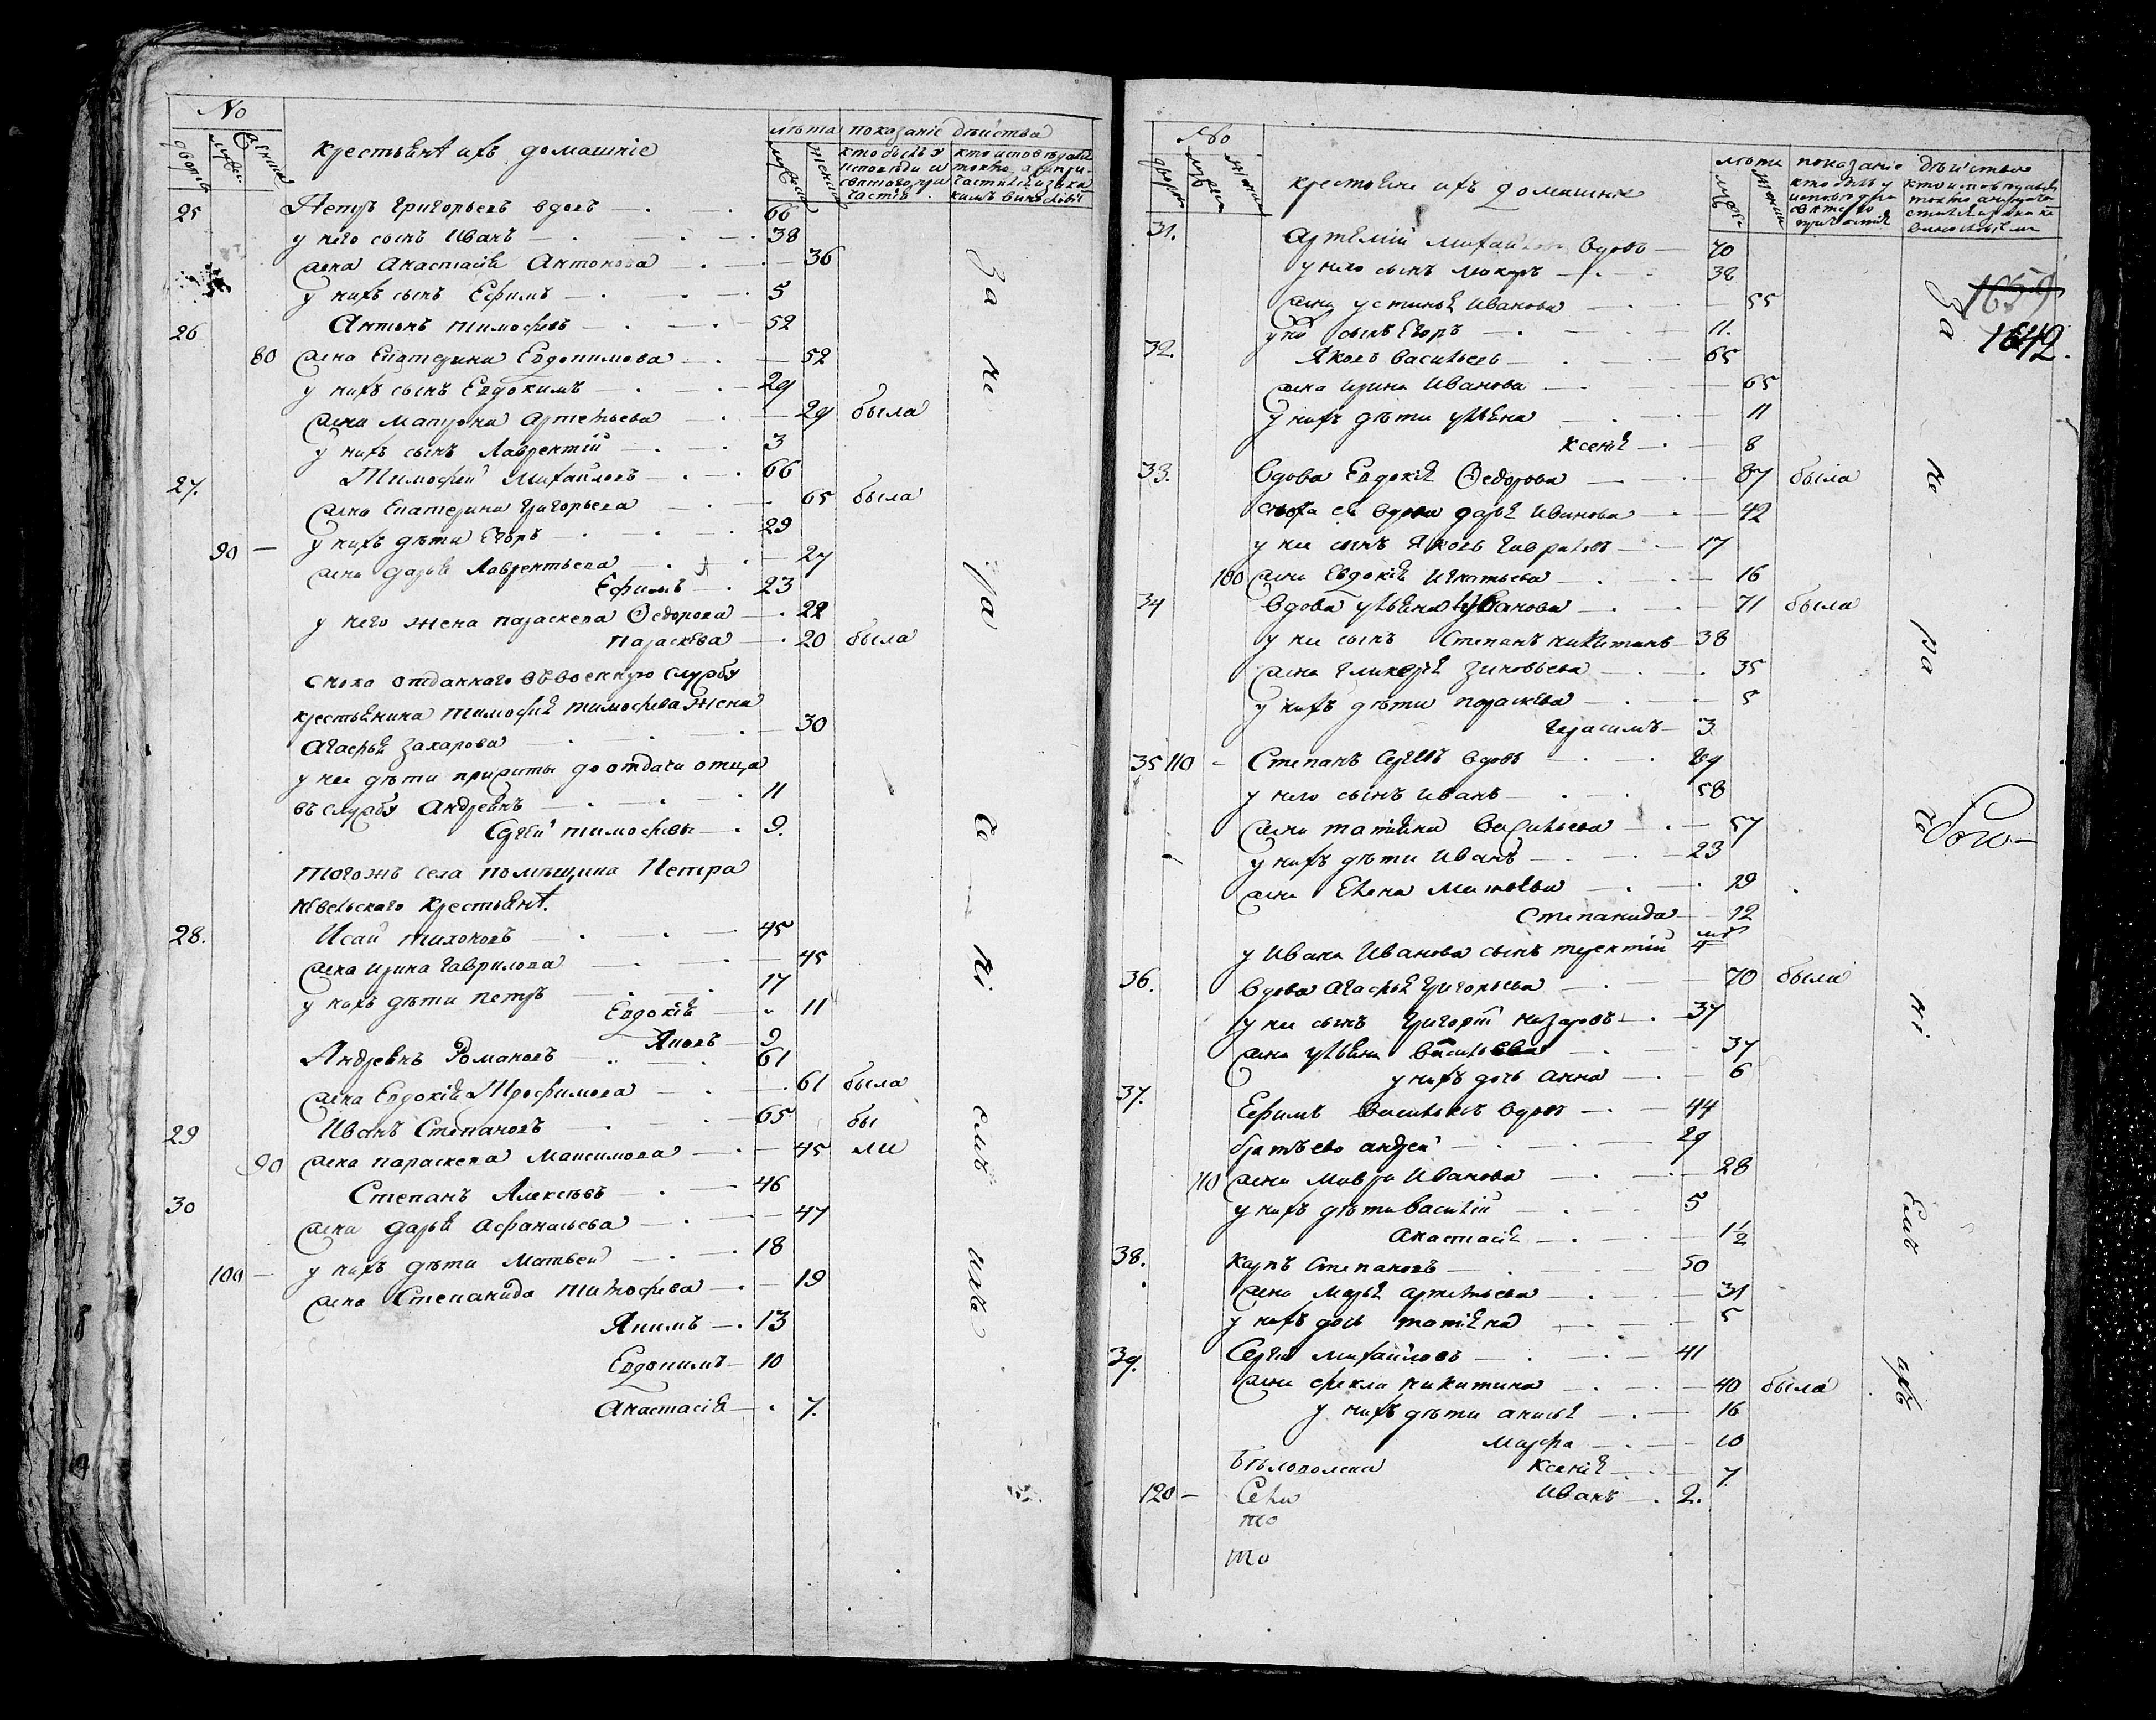 No
дворовъ
мужес.
женска
Крестьянѣ ихъ домашніе
лѣта показаніе дѣйства
мужеска
женска
кто былъ у исповѣди и святого причастія
кто исповѣдался токмо а не причастился и за какимъ винословіемъ
25 Петръ Григорьевъ вдовъ 66
у него сынъ Иванъ 38
жена Анастасія Антонова 36
у нихъ сынъ Ефимъ 5
26 Антонъ Тимофѣевъ 52
80 жена Екатерина Евдокимова 52
у нихъ сынъ Евдокимъ 29
жена Матрона Артемьева 29 была
у нихъ сынъ Лаврентій 3
27. Тимофей Михайловъ 66
жена Екатерина Григорьева 65 была
90 у нихъ дѣти Егоръ 29
жена Дарья Лаврентьева 27
Ефимъ 23
у него жена Параскева Ѳедорова 22
Параскева 20 была
сноха отданнаго въ военную службу
крестьянина Тимофея Тимофеева жена
Агафья Захарова 30
у нее дѣти прижиты до отдачи отца
въ службу Андреянъ 11
Сергей Тимофеевы 9.
Тогожъ села помѣщика Петра
крестьянѣ.
28. Исай Тихоновъ 45
жена Ирина Гаврилова 45
у нихъ дѣти Петръ 17
Евдокія 11
Яковъ 9
Андреянъ Романовъ 61
жена Евдокія Трофимова 61 была
29 Иванъ Степановъ 65 бы
90 жена Параскева Максимова 45 ли
30 Степанъ Алексѣевъ 46
жена Дарья Афанасьева 47
100 у нихъ дѣти Матвей 18
жена Степанида Тимофеева 19
Якимъ 13
Евдокимъ 10
Анастасія 7.
За не ра че ні емъ ихъ
No
дворовъ
мужеска
женска
крестьяне ихъ домашніе
лѣта показаніе дѣйство
1659
1642.
31. Артемій Михайловъ вдовъ 70
у него сынъ Макаръ 38
жена Устинья Иванова 55
у нихъ сынъ Егоръ 11.
32. Яковъ Васильевъ 65
жена Ирина Иванова 65
у нихъ дѣти Ульяна 11
Ксенія 8
33. Вдова Евдокія Ѳедорова 87 была
сноха ея вдова Дарья Иванова 42
у нее сынъ Яковъ Гавриловъ 17
100 жена Евдокія Игнатьева 16
34 Вдова Ульяна Иванова 71 была
у нее сынъ Степанъ Никитинъ 38
жена Гликерья Зиновьева 35
у нихъ дѣти Параскева 5
Герасимъ 3
35 110 Степанъ Сергѣевъ вдовъ 89
у него сынъ Иванъ 58
жена Татіяна Васильева 57
у нихъ дѣти Иванъ 23
жена Елена Матвеева 19
Степанида 12
у Ивана Иванова сынъ Терентій 4 мѣ
36. Вдова Агафья Григорьева 70 была
у нее сынъ Григорій Назаровъ 37
жена Ульяна Васильева 37
у нихъ дочь Анна 6
37. Ефимъ Васильевъ вдовъ 44
братъ ево Андрей 29
110 жена Мавра Иванова 28
у нихъ дѣти Василій 5
Анастасія 1½
38. Карпъ Степановъ 50
жена Марья Артемьева 31
у нихъ дочь Татіяна 5
39. Сергѣй Михайловъ 41
жена Фекла Никитина 40 была
у нихъ дѣти Анисья 16
Марфа 10
Ксенія 7.
120 Иванъ 2.
Села
то
то
За не ра че ні емъ ихъ
Бого-